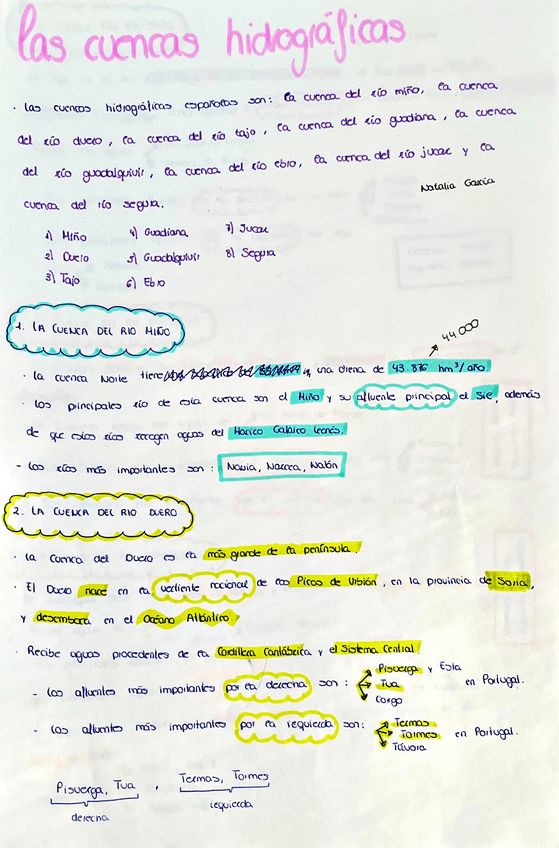 las cuencas hidrográficas
· Las cuencas hidrográficas españolas son: la cuenca del río miño, la cuenca
del río duero, la cuenca del río tajo, la cuenca del río guadiana, la cuenca
del río guadalquivir, la cuenca del río ebro, la cuenca del río jucar y la
cuenca del río segura.
Natalia García
1) Miño 4) Guadiana 7) Jucar
2) Duero 5) Guadalquivir 8) Segura
3) Tajo 6) Ebro
1. LA CUENCA DEL RIO MIÑO
44.000
· La cuenca Norte tiene una drena de 43.876 hm³/año.
· Los principales río de esta cuenca son el Miño y su afluente principal el Sie, además
de que estos ríos recogen aguas del Macico Galaico leonés.
- Los ríos más importantes son: Navia, Narcea, Nalón
2. LA CUENCA DEL RIO DUERO
· La Cuenca del Duero es la más grande de la península.
· El Duero nace en la vertiente nacional de los Picos de Urbión, en la provincia de Soria,
y desemboca en el Océano Atlántico.
· Recibe aguas procedentes de la Cordillera Cantábrica y el Sistema Central.
- Los afluentes más importantes por la derecha son: Pisuerga y Esla
Tua en Portugal.
Corgo
- Los afluentes más importantes por la izquierda son: Termas
Tormes en Portugal.
Távora
Pisuerga, Tua , Termas, Tormes
derecha izquierda